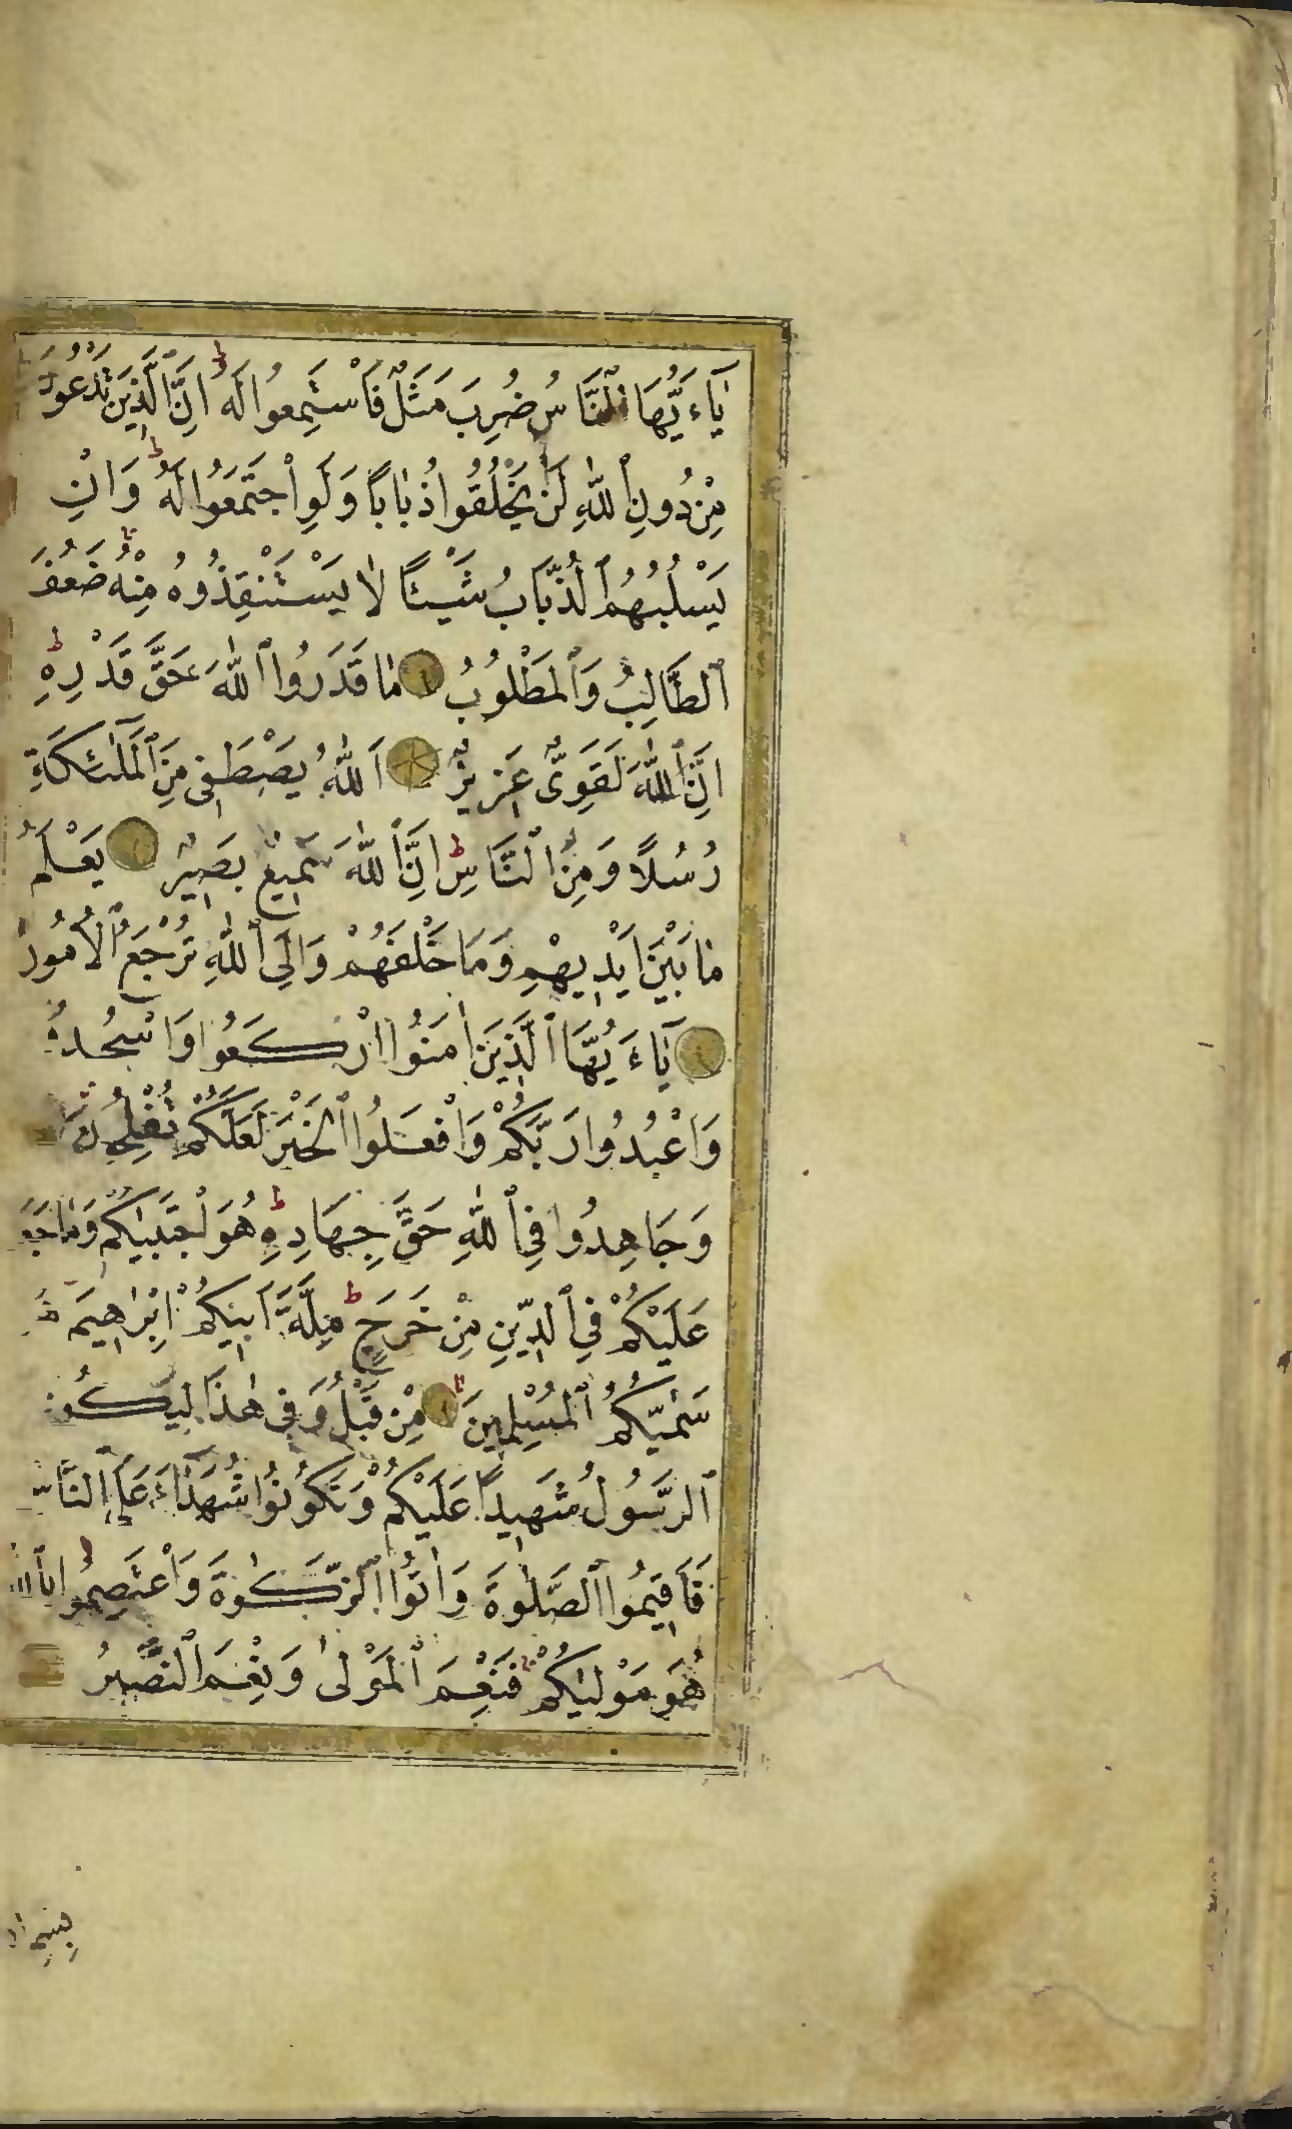 يَٓاءَيُّهَا ٱلنَّاسُ ضُرِبَ مَثَلٌ فَاسْتَمِعُوا لَهُ ط اِنَّ ٱلَّذِينَ تَدْعُونَ
مِنْ دُونِ ٱللّٰهِ لَنْ يَخْلُقُوا ذُبَابًا وَلَوِ ٱجْتَمَعُوا لَهُ ط وَاِنْ
يَسْلُبْهُمُ ٱلذُّبَابُ شَيْئًا لَا يَسْتَنْقِذُوهُ مِنْهُ ط ضَعُفَ
ٱلطَّالِبُ وَٱلْمَطْلُوبُ مَا قَدَرُوا ٱللّٰهَ حَقَّ قَدْرِهِ ط
اِنَّ ٱللّٰهَ لَقَوِىٌّ عَزِيزٌ اَللّٰهُ يَصْطَفِى مِنَ ٱلْمَلٰٓئِكَةِ
رُسُلًا وَمِنَ ٱلنَّاسِ ط اِنَّ ٱللّٰهَ سَمِيعٌ بَصِيرٌ يَعْلَمُ
مَا بَيْنَ اَيْدِيهِمْ وَمَا خَلْفَهُمْ وَاِلَى ٱللّٰهِ تُرْجَعُ ٱلْاُمُورُ
يَٓاءَيُّهَا ٱلَّذِينَ اٰمَنُوا ارْكَعُوا وَاسْجُدُوا
وَاعْبُدُوا رَبَّكُمْ وَافْعَلُوا ٱلْخَيْرَ لَعَلَّكُمْ تُفْلِحُونَ
وَجَاهِدُوا فِى ٱللّٰهِ حَقَّ جِهَادِهِ ط هُوَ ٱجْتَبٰيكُمْ وَمَا جَعَ
عَلَيْكُمْ فِى ٱلدِّينِ مِنْ حَرَجٍ ط مِلَّةَ اَبِيكُمْ اِبْرٰاهِيمَ هُ
سَمّٰيكُمُ ٱلْمُسْلِمِينَ مِنْ قَبْلُ وَفِى هٰذَا لِيَكُونَ
ٱلرَّسُولُ شَهِيدًا عَلَيْكُمْ وَتَكُونُوا شُهَدَٓاءَ عَلَى ٱلنَّاسِ
فَاَقِيمُوا ٱلصَّلٰوةَ وَاٰتُوا ٱلزَّكٰوةَ وَاعْتَصِمُوا بِٱللّٰهِ
هُوَ مَوْلٰيكُمْ فَنِعْمَ ٱلْمَوْلٰى وَنِعْمَ ٱلنَّصِيرُ
بِسْمِ